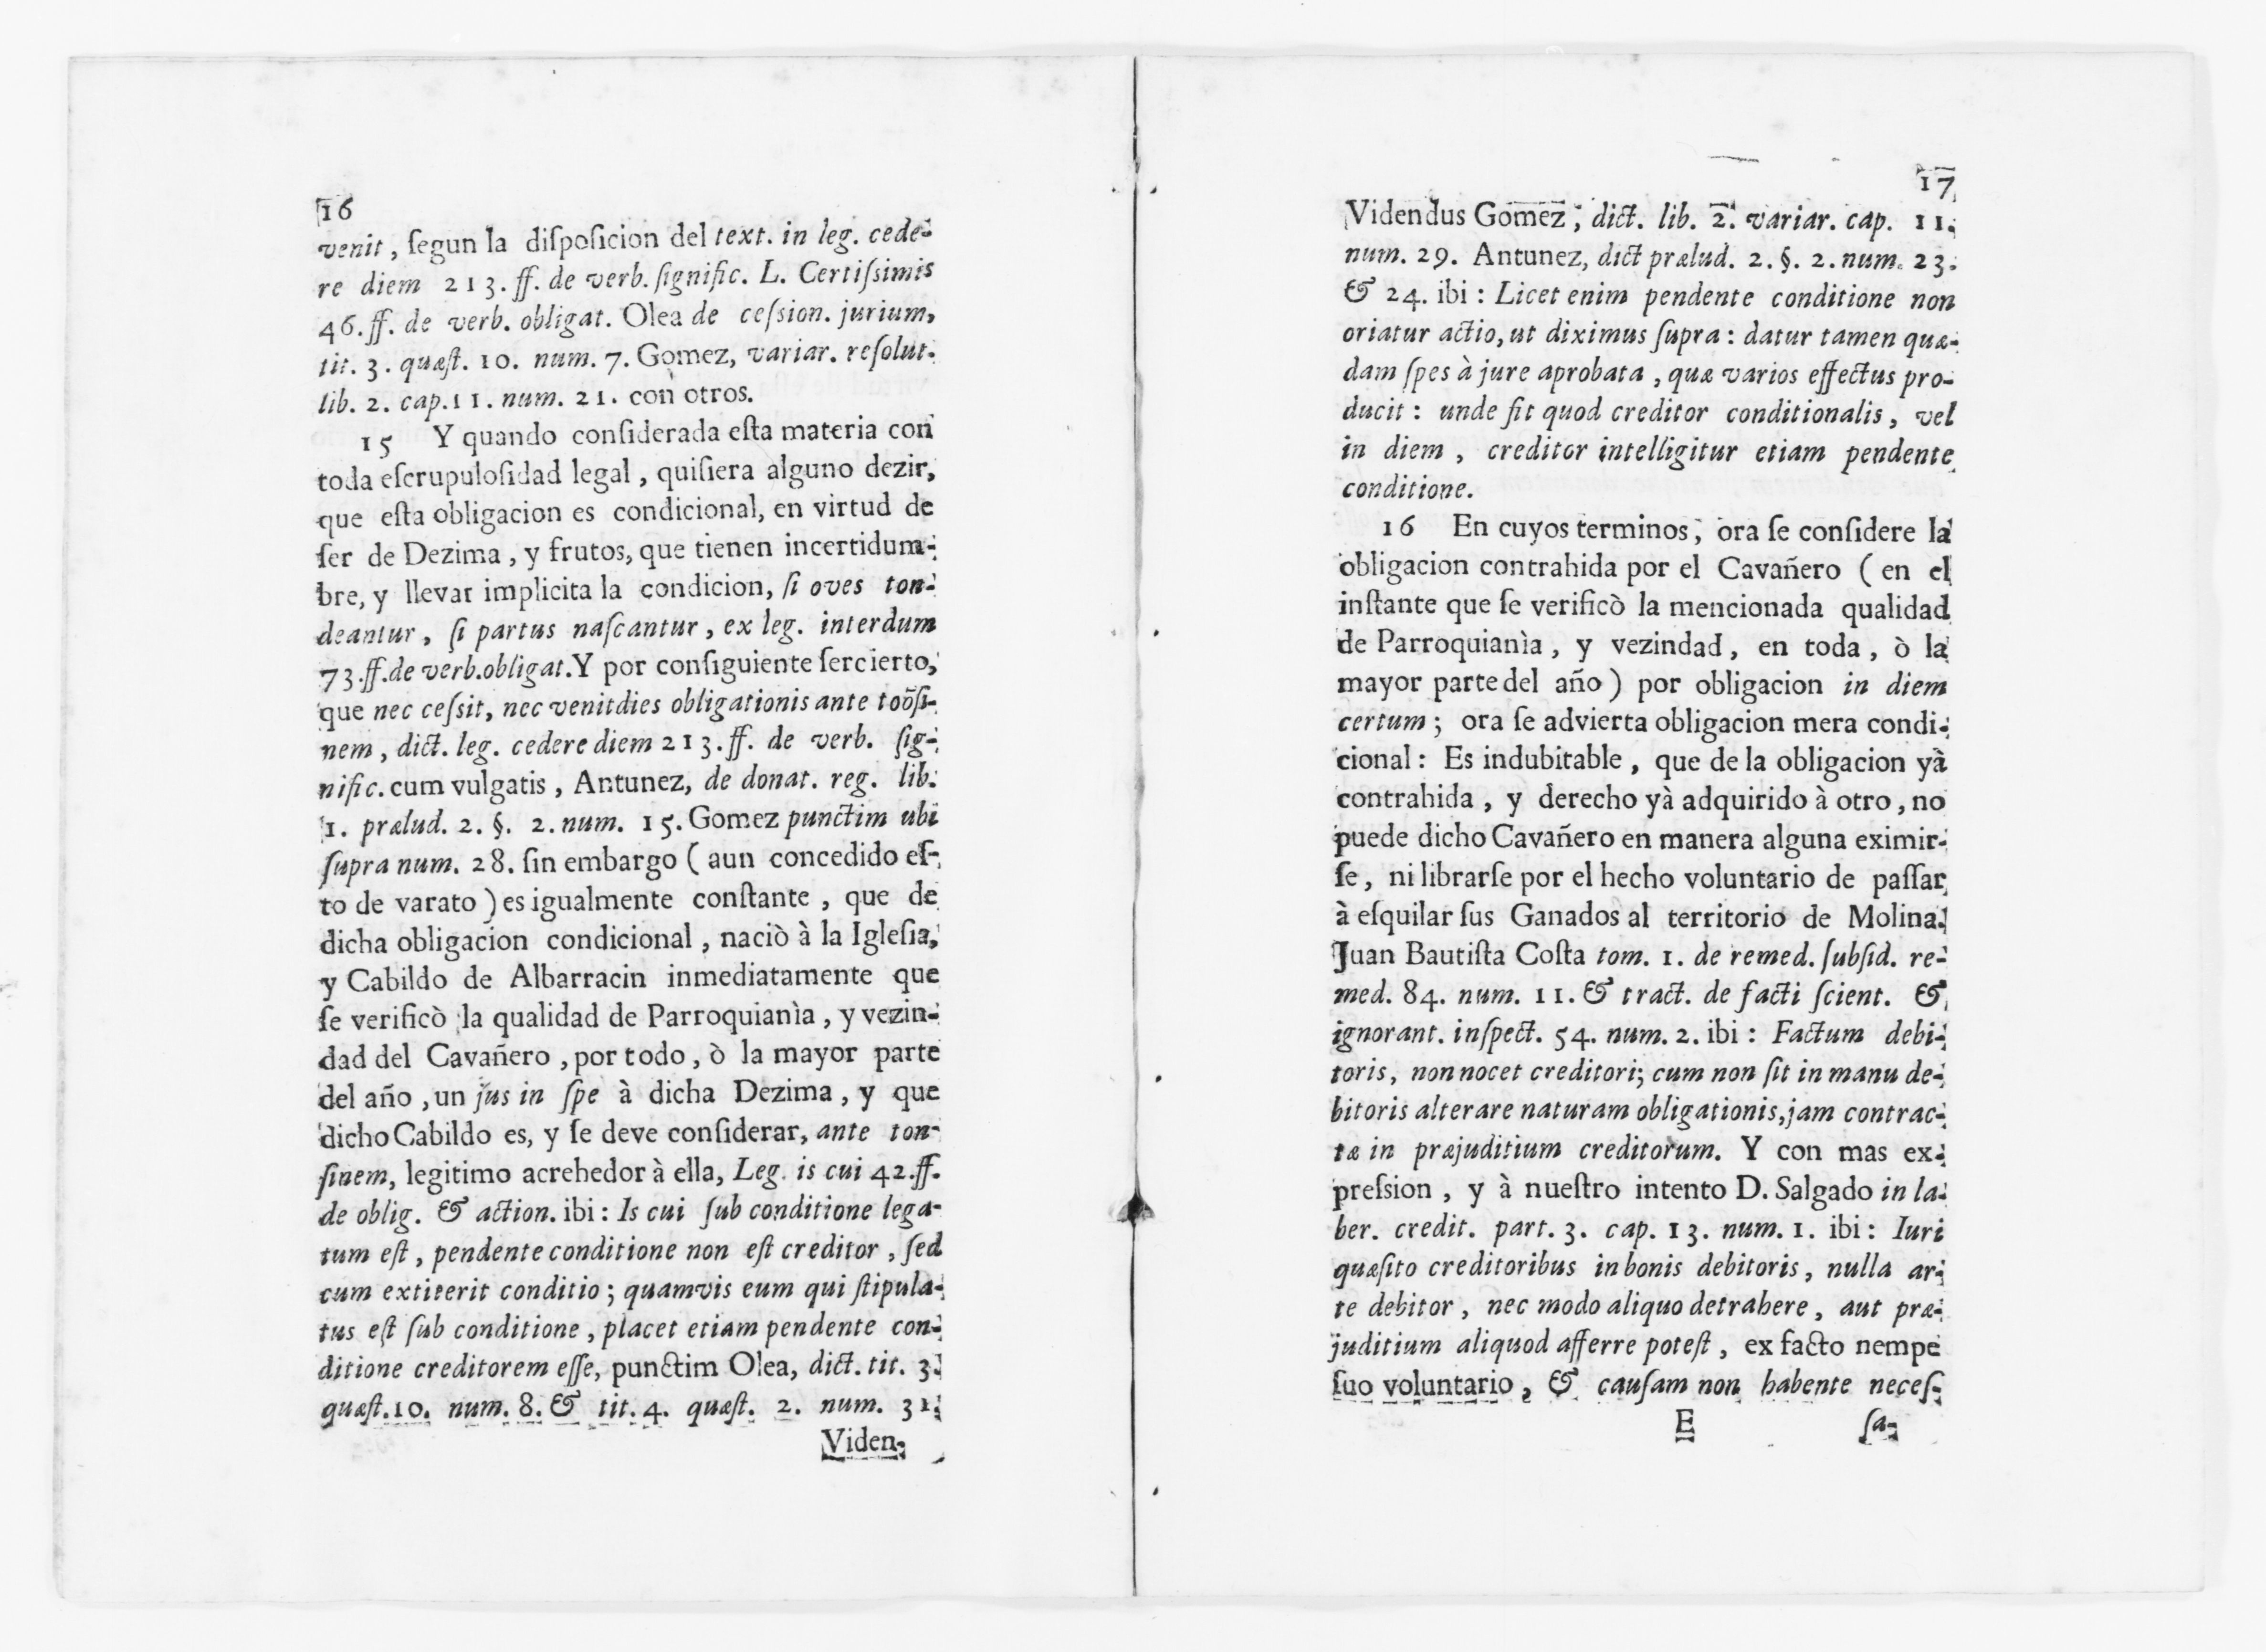 16
venit, ſegun la diſpoſicion del text. in leg. cede-
re diem 213. ff. de verb. ſignific. L. Certiſsimis
46. ff. de verb. obligat. Olea de ceſsion. jurium,
tit. 3. quæſt. 10. num. 7. Gomez, variar. reſolut.
lib. 2. cap. 11. num. 21. con otros.
15 Y quando conſiderada eſta materia con
toda eſcrupuloſidad legal, quiſiera alguno dezir,
que eſta obligacion es condicional, en virtud de
ſer de Dezima, y frutos, que tienen incertidum-
bre, y llevar implicita la condicion, ſi oves ton-
deantur, ſi partus naſcantur, ex leg. interdum
73. ff. de verb. obligat. Y por conſiguiente ſer cierto,
que nec ceſsit, nec venit dies obligationis ante toõſi-
nem, dict. leg. cedere diem 213. ff. de verb. ſig-
nific. cum vulgatis, Antunez, de donat. reg. lib.
1. prælud. 2. §. 2. num. 15. Gomez punctim ubi
ſupra num. 28. ſin embargo (aun concedido eſ-
to de varato) es igualmente conſtante, que de
dicha obligacion condicional, naciò à la Igleſia,
y Cabildo de Albarracin inmediatamente que
ſe verificò la qualidad de Parroquianìa, y vezin-
dad del Cavañero, por todo, ò la mayor parte
del año, un jus in ſpe à dicha Dezima, y que
dicho Cabildo es, y ſe deve conſiderar, ante ton-
ſinem, legitimo acrehedor à ella, Leg. is cui 42. ff.
de oblig. & action. ibi: Is cui ſub conditione lega-
tum eſt, pendente conditione non eſt creditor, ſed
cum extiterit conditio; quamvis eum qui ſtipula-
tus eſt ſub conditione, placet etiam pendente con-
ditione creditorem eſſe, punctim Olea, dict. tit. 3.
quæſt. 10. num. 8. & tit. 4. quæſt. 2. num. 31.
Viden-
17
Videndus Gomez, dict. lib. 2. variar. cap. 11.
num. 29. Antunez, dict prælud. 2. §. 2. num. 23.
& 24. ibi: Licet enim pendente conditione non
oriatur actio, ut diximus ſupra: datur tamen quæ-
dam ſpes à jure aprobata, quæ varios effectus pro-
ducit: unde fit quod creditor conditionalis, vel
in diem, creditor intelligitur etiam pendente
conditione.
16 En cuyos terminos, ora ſe conſidere la
obligacion contrahida por el Cavañero (en el
inſtante que ſe verificò la mencionada qualidad
de Parroquianìa, y vezindad, en toda, ò la
mayor parte del año) por obligacion in diem
certum; ora ſe advierta obligacion mera condi-
cional: Es indubitable, que de la obligacion yà
contrahida, y derecho yà adquirido à otro, no
puede dicho Cavañero en manera alguna eximir-
ſe, ni librarſe por el hecho voluntario de paſſar
à eſquilar ſus Ganados al territorio de Molina.
Juan Bautiſta Coſta tom. 1. de remed. ſubſid. re-
med. 84. num. 11. & tract. de facti ſcient. &
ignorant. inſpect. 54. num. 2. ibi: Factum debi-
toris, non nocet creditori; cum non ſit in manu de-
bitoris alterare naturam obligationis, jam contrac-
tæ in præjuditium creditorum. Y con mas ex-
preſsion, y à nueſtro intento D. Salgado in la-
ber. credit. part. 3. cap. 13. num. 1. ibi: Iuri
quæſito creditoribus in bonis debitoris, nulla ar-
te debitor, nec modo aliquo detrahere, aut præ-
juditium aliquod afferre poteſt, ex facto nempe
ſuo voluntario, & cauſam non habente neceſ-
E ſa-